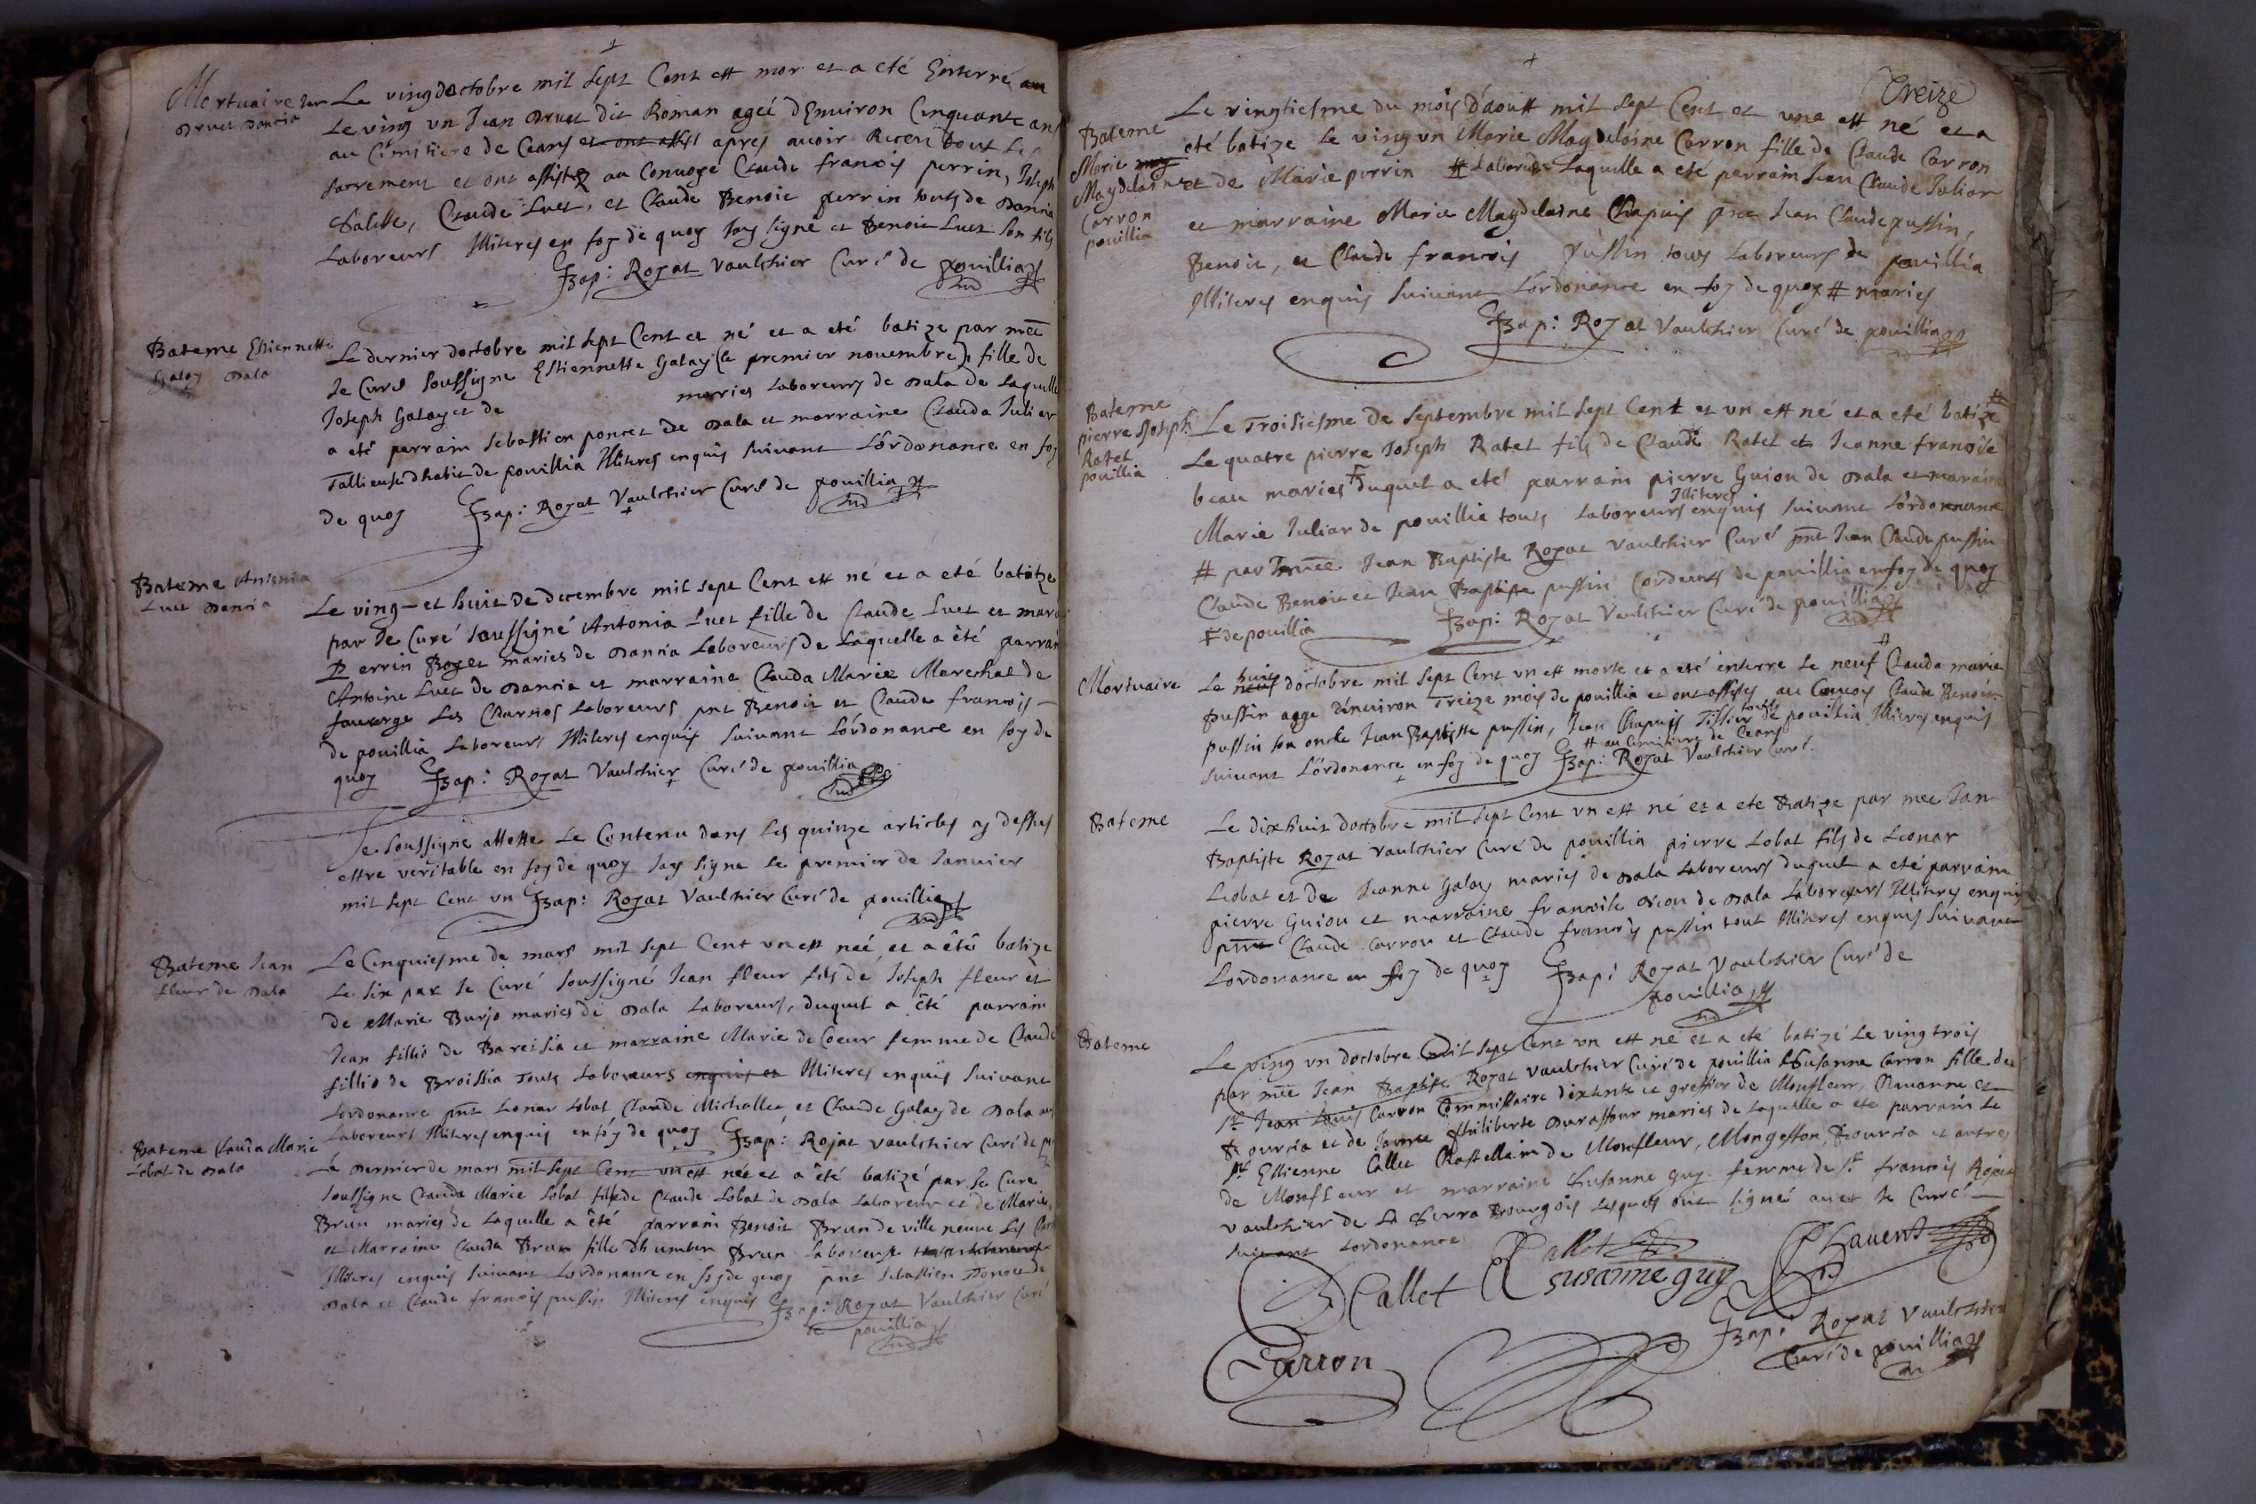 Mortuaire Jan
Druet Dancia
Le ving doctobre mil sept Cent est mor et a eté Enterré
Le ving un Jean Druet dit Roman ageé dEnviron Cinquante ans
au Cimitiere de Ceans et ont apres avoir Receu tout Les
sacrement et ont assistez au Convoge Claude francois perrin, Joseph
Claude Luet, et Claude Benoit perrin touts de Dancia
Laboreurs Illiteres en foy de quoy Jay signe et Benoit Luet son fils
JBap: Rojat Vaulchier Curé de pouillia
Bateme Estiennette
Galay Dala
Le dernier doctobre mil sept Cent et né et a eté batize par mee
Je Curé soussigne Estiennette Galay (le premier novembre) fille de
Joseph Galay et de maries Laboreurs de Dala de Laquelle
a eté parrain sebastien poncet de Dala et marraine Clauda Julier
Tallieuse dhabit de pouillia Illiteres enquis suivant Lordonance en foy
de quoy JBap: Rojat Vaulchier Curé de pouillia
Bateme Antonia
Luet Dancia
Le ving et huit de decembre mil sept Cent est né et a eté batize
par Je Curé soussigné Antonia Luet fille de Claude Luet et
Perrin maries de Dancia Laboreurs de Laquelle a êté parrain
Antoine Luet de Dancia et marraine Clauda Marie Mareschal de
Les Charnos Laboreurs pnt Benoit et Claude francois
de pouillia Laboreurs Illiteres enquis suivant Lordonance en foy de
quoy JBap: Rojat Vaulchier Curé de pouillia
Je soussigne atteste Le Contenu dans Les quinze articles cy dessus
estre veritable en foy de quoy Jay signe Le premier de Janvier
mil sept Cent un JBap: Rojat Vaulchier Curé de pouillia
Bateme Jean
fleur de Dala
Le Cinquiesme de mars mil sept Cent un est neé et a êté batize
Le six par Je Curé soussigné Jean fleur fils de Joseph fleur et
de Marie Burjo maries de Dala Laboreurs, duquel a êté parrain
Jean fillio de Bareisia et marraine Marie de Coeur femme de Claude
fillio de Broissia touts Laboreurs enquis et Illiteres enquis suivant
Lordonance pnt Leonar Lobat Claude Michallet et Claude Galay de Dala
Laboreurs Illiteres enquis en foy de quoy JBap: Rojat Vaulchier Curé de
Bateme Clauda Marie
Lobat de Dala
Le dernier de mars mil sept Cent un est neé et a êté batizé par Je Cure
soussigne Clauda Marie Lobat fille de Claude Lobat de Dala Laboreur et de Marie
Brun maries de Laquelle a êté parrain Benoit Brun de ville neuve Les
et Marraine Clauda Brun fille dhumber Brun Laboreurs
Illiteres enquis suivant Lordonance en foy de quoy pnt sebastien Poncet de
Dala et Claude francois pussin Illiteres enquis JBap: Rojat Vaulchier Curé
de pouillia
Treize
Bateme
Marie
Magdelaine
Carron
pouillia
Le vingtiesme du mois daoust mil sept Cent et une est né et a
eté batize Le ving un Marie Magdelaine Carron fille de Claude Carron
et de Marie perrin # Laboreurs Laquelle a eté parrain Jean Claude Juliar
et marraine Marie Magdelaine Chapuis pnt Jean Claude pussin,
Benoit, et Claude francois pussin touts Laboreurs de pouillia
Illiteres enquis suivant Lordonance en foy de quoy # maries
JBap: Rojat Vaulchier Curé de pouillia
Bateme
pierre Joseph
Ratet
pouillia
Le Troisiesme de septembre mil sept Cent et un est né et a eté batize #
Le quatre pierre Joseph Ratet fils de Claude Ratet et Jeanne francoise
beau maries duquel a eté parrain pierre Guion de Dala et maraine
Marie Juliar de pouillia touts Laboreurs Illiteres enquis suivant Lordonnance
# par mee Jean Baptiste Rojat Vaulchier Curé pnt Jean Claude pussin
Claude Benoit et Jean Baptiste pussin Cordeurs de pouillia en foy de quoy
de pouillia JBap: Rojat Vaulchier Curé de pouillia
Mortuaire
Le huit doctobre mil sept Cent un est morte et a eté enterre Le neuf # Clauda marie
Pussin agge denviron Treize mois de pouillia et ont assistes au Convois Claude Benoit
pussin son oncle Jean Baptiste pussin, Jean Chapuis Tissier touts de pouillia Illiteres enquis
# au Cimitiere de Ceans
suivant Lordonance en foy de quoy JBap: Rojat Vaulchier Curé
Bateme
Le dixhuit doctobre mil sept Cent un est né et a eté Batize par mee Jan
Baptiste Rojat Vaulchier Curé de pouillia pierre Lobat fils de Leonar
Lobat et de Jeanne Galay maries de Dala Laboreurs duquel a eté parrain
pierre Guiou et marraine francoise de Dala Laboreurs Illiteres enquis
pnt Claude Carron et Claude francois pussin tout Illiteres enquis suivant
Lordonance en foy de quoy JBap: Rojat Vaulchier Curé de
pouillia
Bateme
Le ving un doctobre mil sept Cent un est né et a eté batizé Le ving trois
par mee Jean Baptiste Rojat Vaulchier Curé de pouillia Susanne Carron fille de
Sr Jean Louis Carron Commissaire dextente et greffier de Monfleur, Chavanne et
Bourcia et de Philiberte maries de Laquelle a eté parrain Le
Sr Estienne Callet Chastellain de Monfleur, Mongeffon, Bourcia et autres
de Monfleur et marraine Susanne guy femme de Sr francois Rojat
Vaulchier de La Serra Bourgois Lesquels ont signé avec Je Curé
suivant Lordonance
Callet
Callet
susanne guy
Carron
JBap: Rojat Vaulchier
Curé de pouillia